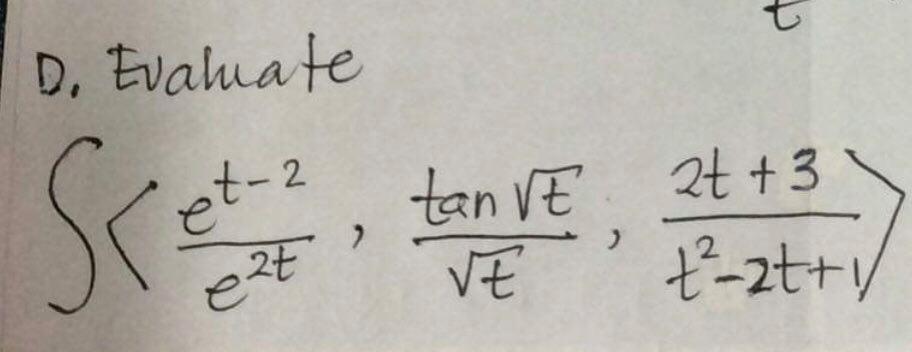 t
D. Evaluate
∫⟨ e^{t-2}/e^{2t} , tan √t/√t , 2t+3/t²-2t+1 ⟩